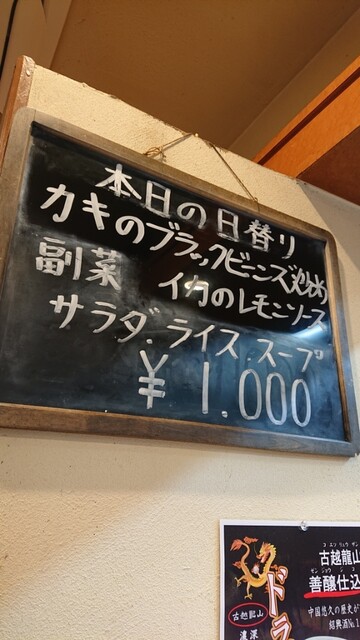 本日の日替り
カキのブラックビーンズ炒め
副菜 イカのレモンソース
サラダ.ライス スープ
¥1.000
古越龍山
善醸仕込
中国悠久の歴史が
紹興酒No.1
ドラ
古越龍山
濃深